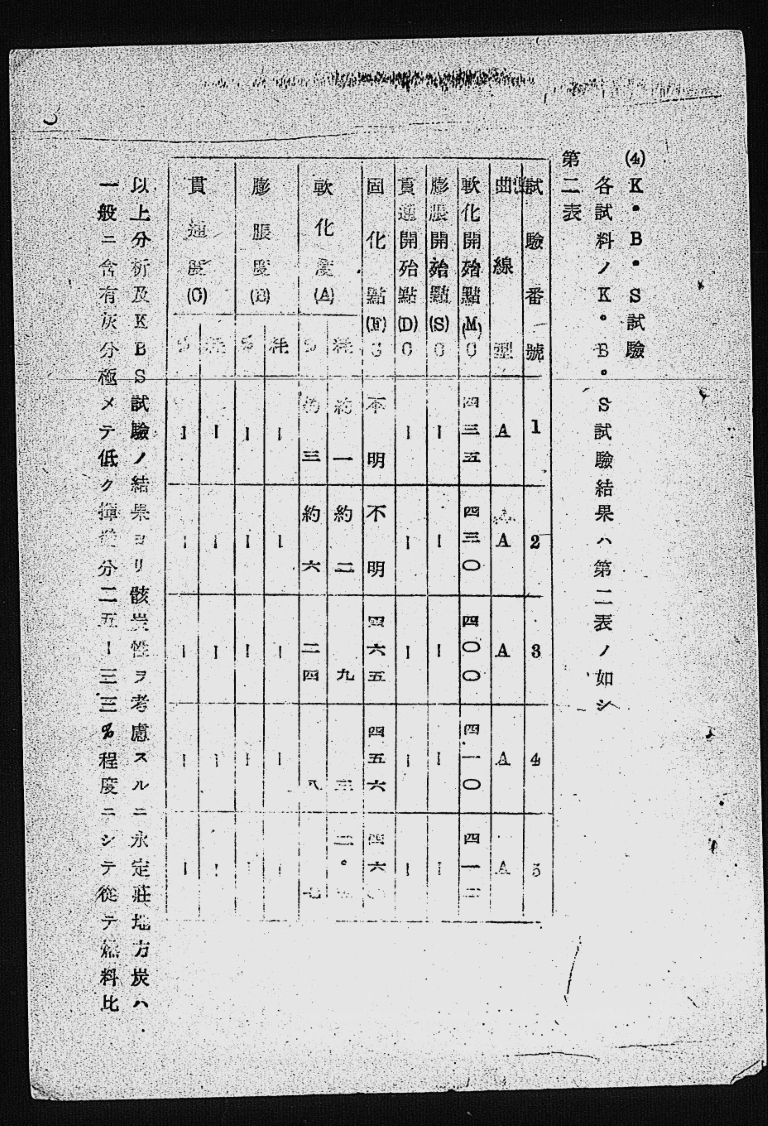 (4) K・B・S試驗
各試料ノK・B・S試驗結果ハ第二表ノ如シ
第二表
試驗番號 1 2 3 4 5
曲線型 A A A A A
軟化開始點(M)C 四三五 四三〇 四〇〇 四一〇 四一二
膨脹開始點(S)C ー ー ー ー ー
貫通開始點(D)C ー ー ー ー ー
固化點(F)C 不明 不明 四六五 四五六 四六〇
軟化度(A) 粍 約一 約二 九 三
% 約三 約六 二四 八 七
膨脹度(B) 粍 ー ー ー ー ー
% ー ー ー ー ー
貫通度(G) 粍 ー ー ー ー ー
% ー ー ー ー ー
以上分析及KBS試驗ノ結果ヨリ骸炭性ヲ考慮スルニ永定莊地方炭ハ
一般ニ含有灰分極メテ低ク揮發分二五ー三三%程度ニシテ從テ燃料比